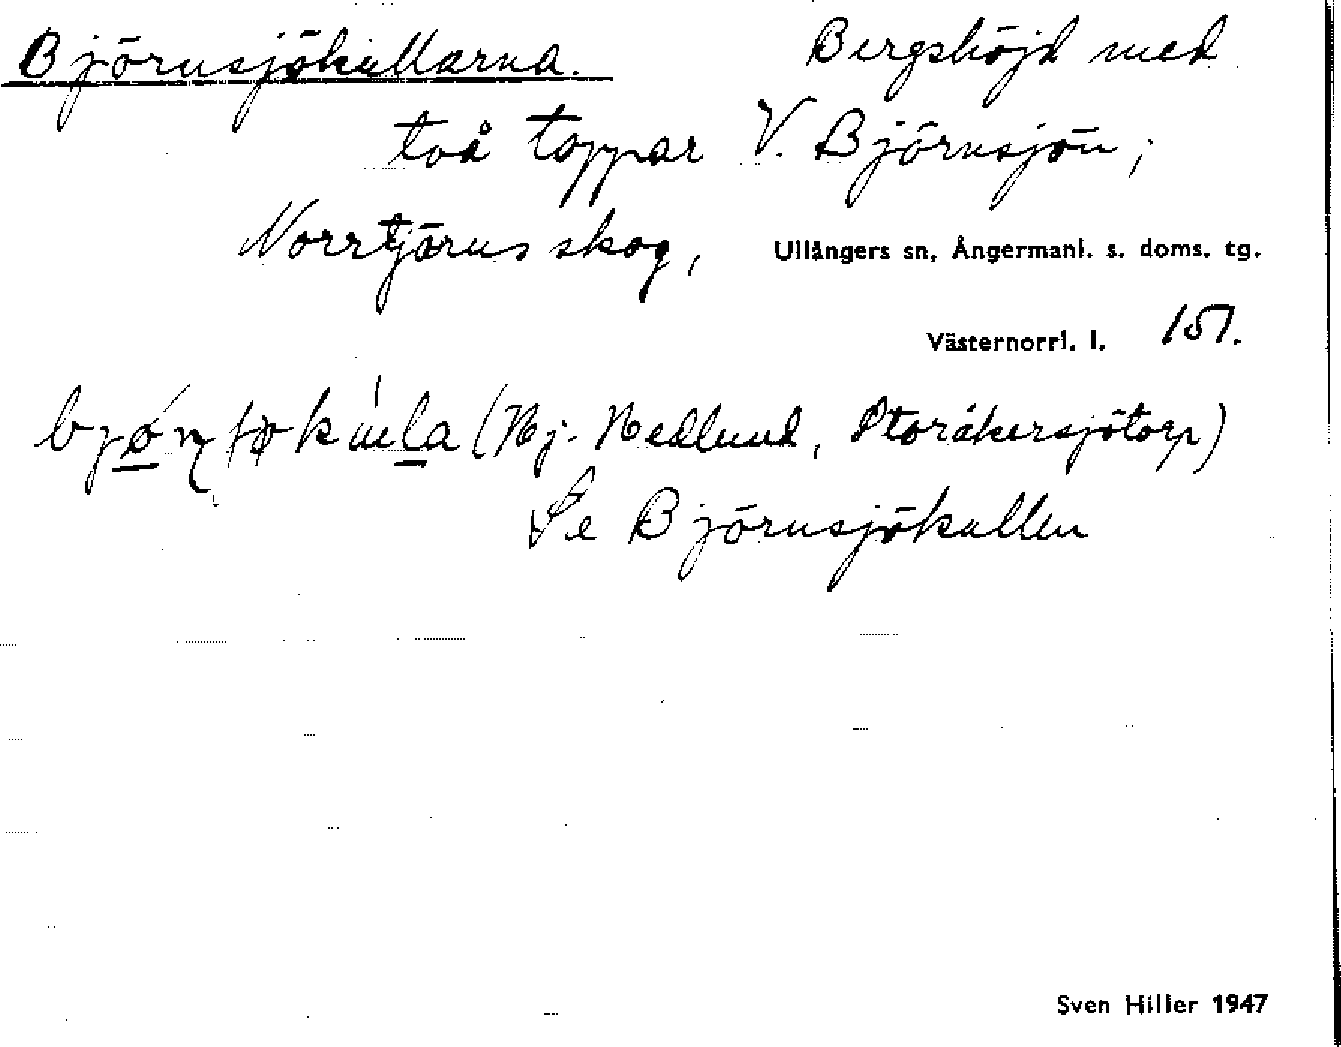 Björnsjökullarna. Bergshöjd med
två toppar V. Björnsjön;
Norrtjärns skog, Ullångers sn, Ångermanl. s. doms. tg.
Västernorrl. l. 151.
(Hj. Hedlund, Storåkersjötorp)
Se Björnsjökullen
Sven Hiller 1947